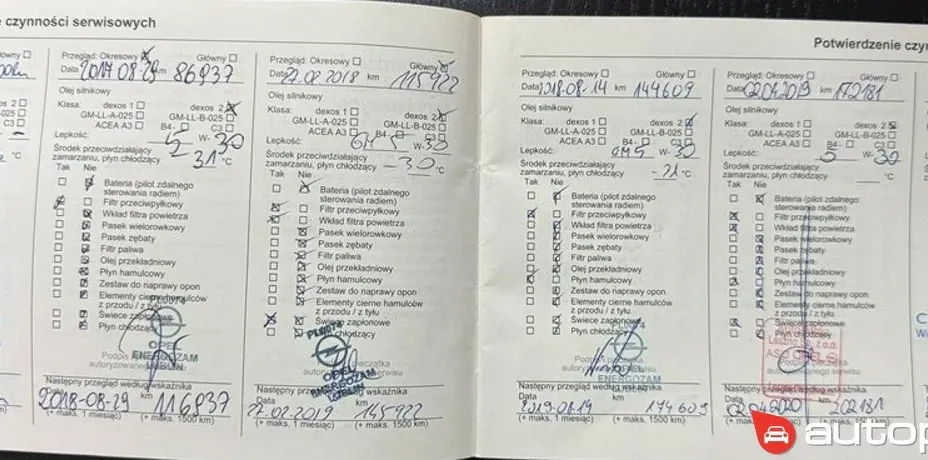 e czynności serwisowych
Przegląd: Okresowy Główny
Data 2017.08.29 km 86837
Olej silnikowy
Klasa: dexos 1 dexos 2
GM-LL-A-025 GM-LL-B-025
ACEA A3 B4- C3
Lepkość: 5 W- 30
Środek przeciwdziałający
zamarzaniu, płyn chłodzący -31 °C
Tak Nie
Bateria (pilot zdalnego
sterowania radiem)
Filtr przeciwpyłkowy
Wkład filtra powietrza
Pasek wielorowkowy
Pasek zębaty
Filtr paliwa
Olej przekładniowy
Płyn hamulcowy
Zestaw do naprawy opon
Elementy cierne hamulców
z przodu / z tyłu
Świece zapłonowe
Płyn chłodzący
OPEL
ENERGOZAM
LUBLIN
Następny przegląd według wskaźnika
Data km
2018-08-29 116837
(+ maks. 1 miesiąc) (+ maks. 1500 km)
Przegląd: Okresowy Główny
Data 27.02.2018 km 115922
Olej silnikowy
Klasa: dexos 1 dexos 2
GM-LL-A-025 GM-LL-B-025
ACEA A3 B4- C3
Lepkość: GM 5 W- 30
Środek przeciwdziałający
zamarzaniu, płyn chłodzący -30 °C
Tak Nie
Bateria (pilot zdalnego
sterowania radiem)
Filtr przeciwpyłkowy
Wkład filtra powietrza
Pasek wielorowkowy
Pasek zębaty
Filtr paliwa
Olej przekładniowy
Płyn hamulcowy
Zestaw do naprawy opon
Elementy cierne hamulców
z przodu / z tyłu
Świece zapłonowe
Płyn chłodzący
OPEL
ENERGOZAM
LUBLIN
Następny przegląd według wskaźnika
Data km
27.02.2019 145922
(+ maks. 1 miesiąc) (+ maks. 1500 km)
Potwierdzenie czyn
Przegląd: Okresowy Główny
Data 2018-08-14 km 144609
Olej silnikowy
Klasa: dexos 1 dexos 2
GM-LL-A-025 GM-LL-B-025
ACEA A3 B4- C3
Lepkość: GM 5 W- 30
Środek przeciwdziałający
zamarzaniu, płyn chłodzący °C
Tak Nie
Bateria (pilot zdalnego
sterowania radiem)
Filtr przeciwpyłkowy
Wkład filtra powietrza
Pasek wielorowkowy
Pasek zębaty
Filtr paliwa
Olej przekładniowy
Płyn hamulcowy
Zestaw do naprawy opon
Elementy cierne hamulców
z przodu / z tyłu
Świece zapłonowe
Płyn chłodzący
ENERGOZAM
Następny przegląd według wskaźnika
Data km
174609
(+ maks. 1 miesiąc) (+ maks. 1500 km)
Przegląd: Okresowy Główny
Data 02.04.2019 km 172181
Olej silnikowy
Klasa: dexos 1 dexos 2
GM-LL-A-025 GM-LL-B-025
ACEA A3 B4- C3
Lepkość: 5 W- 30
Środek przeciwdziałający
zamarzaniu, płyn chłodzący °C
Tak Nie
Bateria (pilot zdalnego
sterowania radiem)
Filtr przeciwpyłkowy
Wkład filtra powietrza
Pasek wielorowkowy
Pasek zębaty
Filtr paliwa
Olej przekładniowy
Płyn hamulcowy
Zestaw do naprawy opon
Elementy cierne hamulców
z przodu / z tyłu
Świece zapłonowe
Płyn chłodzący
Następny przegląd według wskaźnika
Data km
02.04.2020 202181
(+ maks. 1 miesiąc) (+ maks. 1500 km)
autop